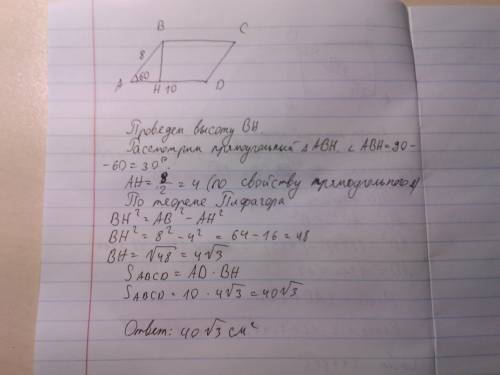 B C
8
A 60 H 10 D
Проведем высоту BH.
Рассмотрим прямоугольный △ ABH. ∠ ABH=90-
-60=30°.
AH= 8/2 = 4 (по свойству прямоугольного △)
По теореме Пифагора
BH²=AB²-AH²
BH²=8²-4²=64-16=48
BH=√48=4√3
SABCD=AD·BH
SABCD=10·4√3=40√3
Ответ: 40√3 см²